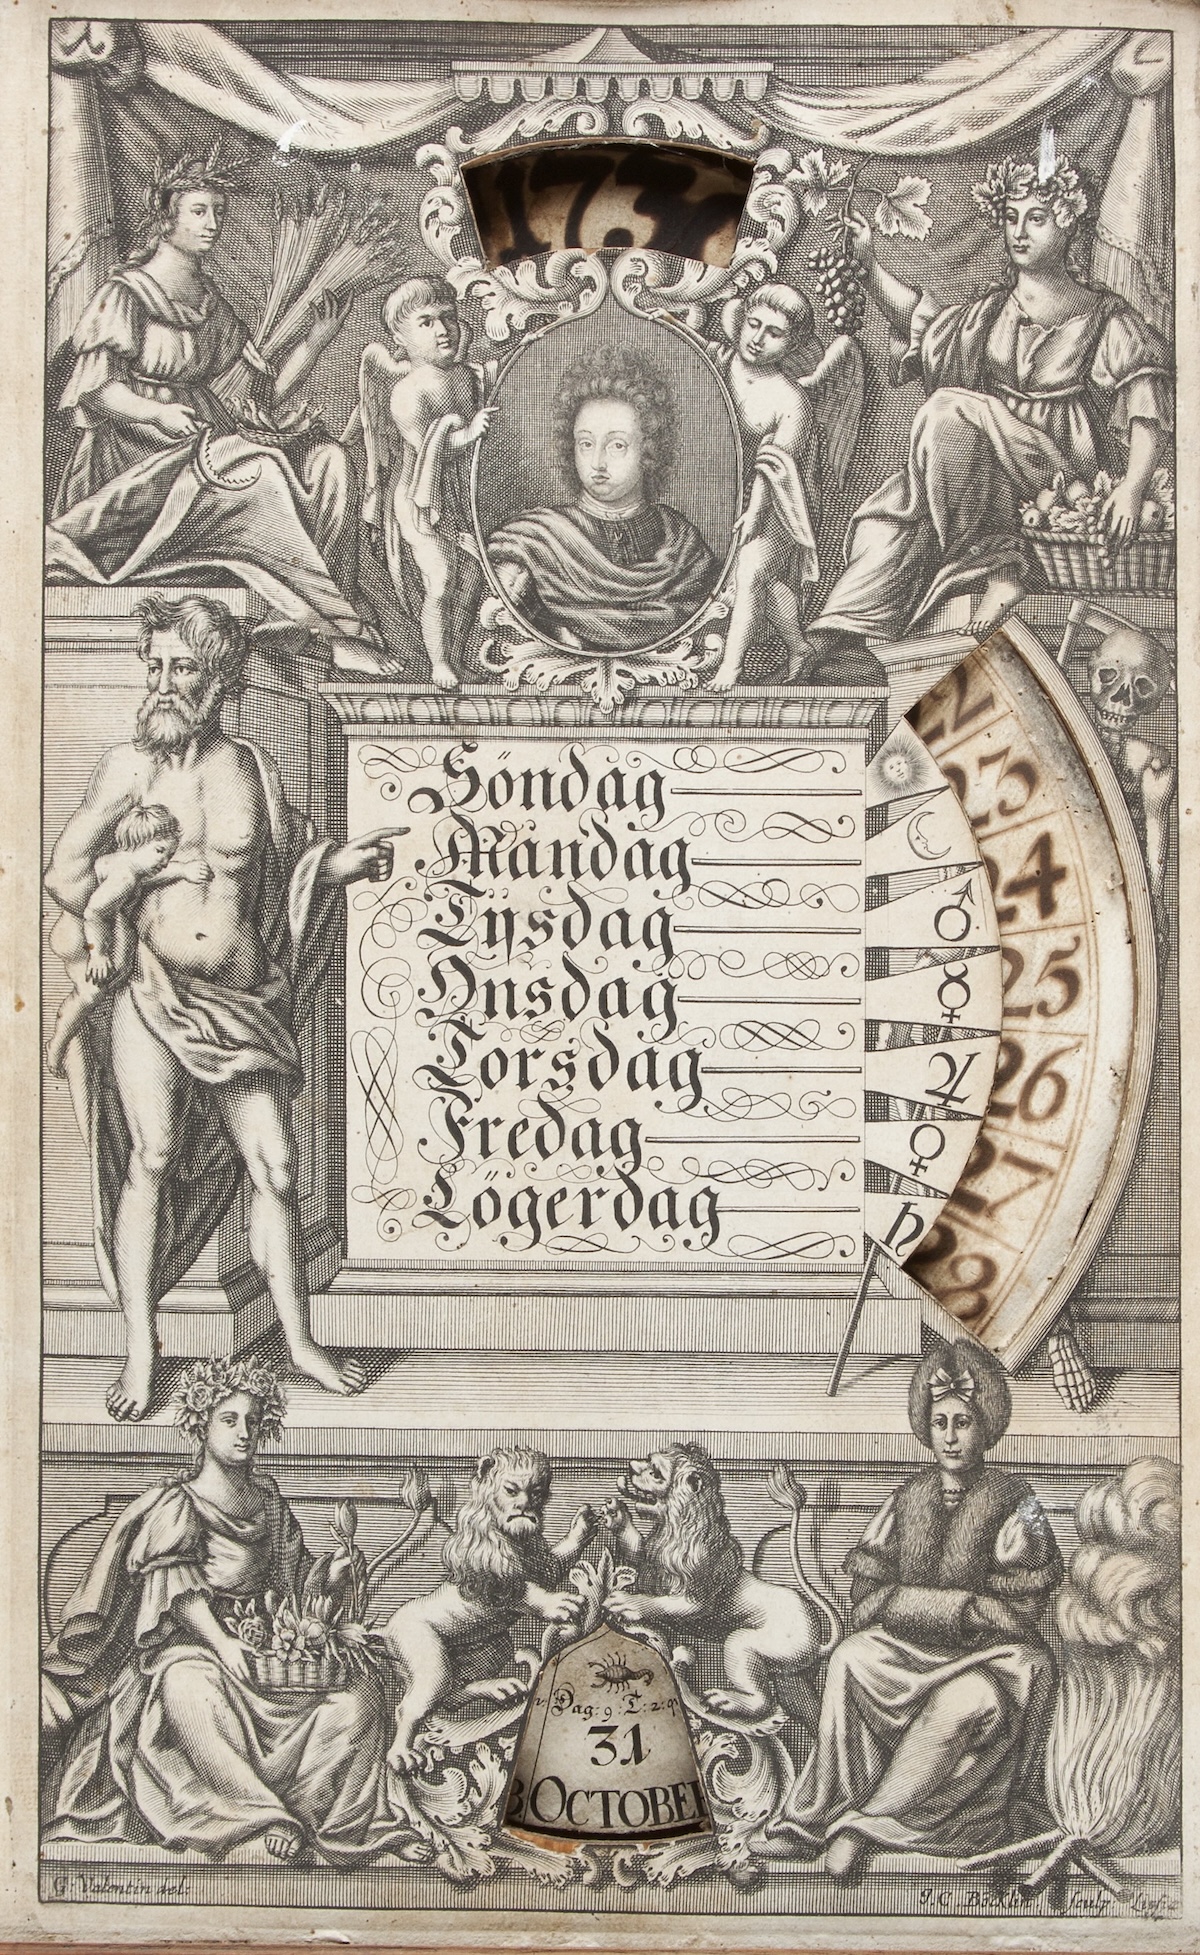 173
Söndag
Mandag
Tijsdag
Onsdag
Torsdag
Fredag
Lögerdag
☉
☾
♂
☿
♃
♀
♄
22
23
24
25
26
27
28
Dag: 9: T: 2:
31
OCTOBER
G: Valentin del:
J. C. Böcklin. sculp.